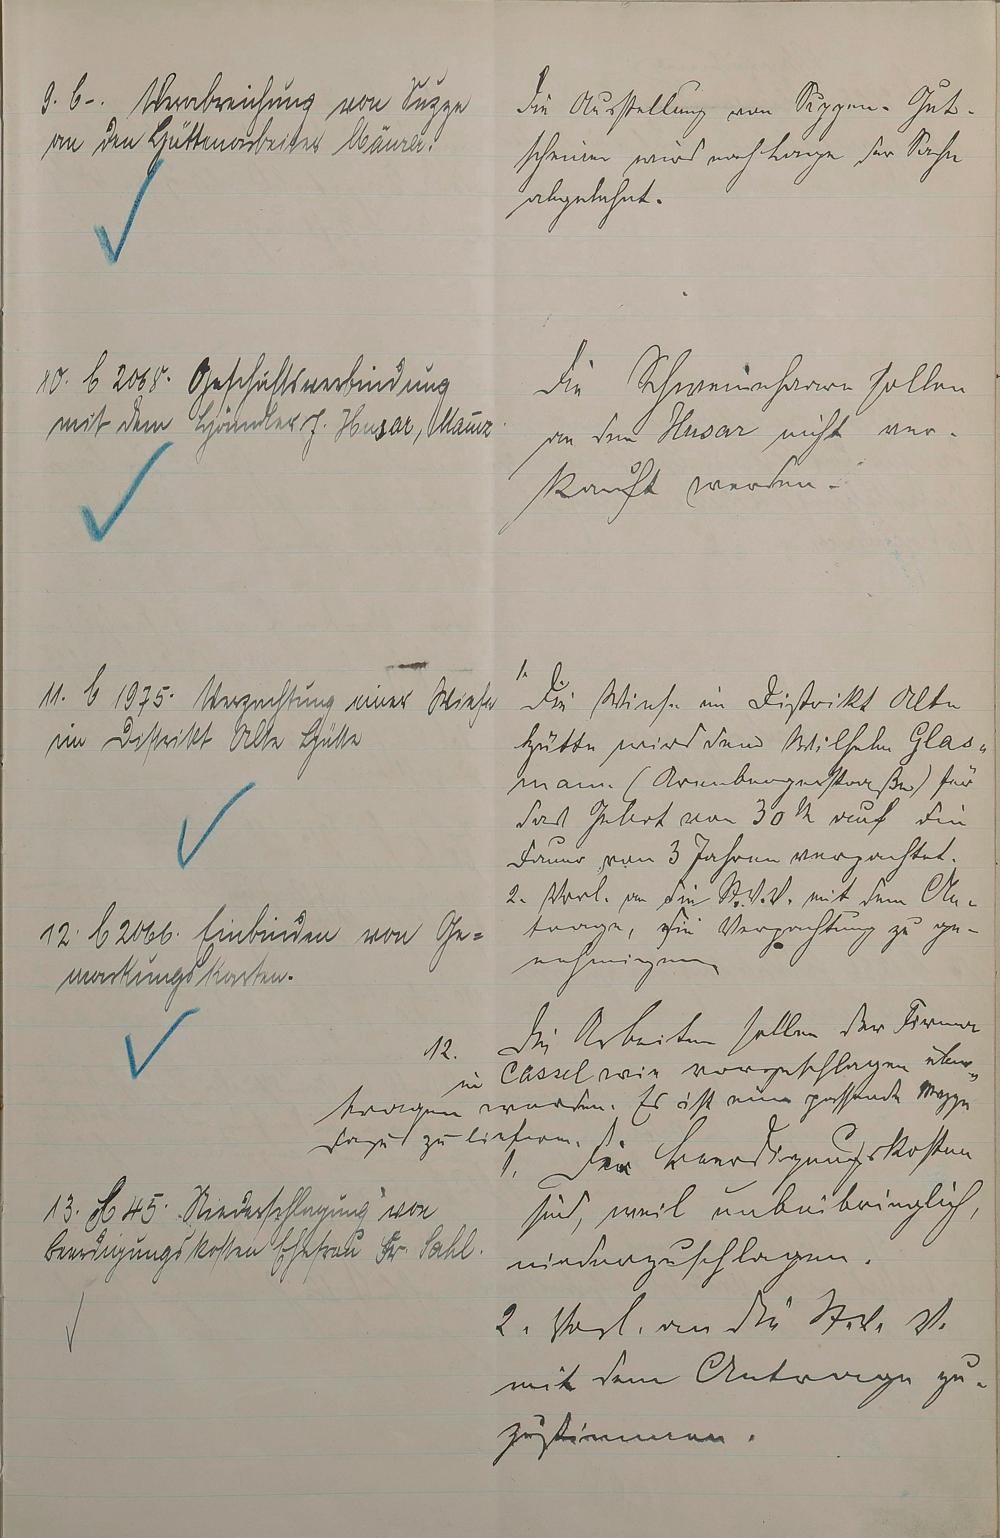 9. b-. Verabreichung von Suppe
an den Hüttenarbeiter
Die Ausstellung von Suppen-Gut-
scheinen wird nach Lage der Sache
abgelehnt.
10. b 2068. Geschäftsverbindung
mit dem Händler J. Husar, Mainz.
Die Schweinehaare sollen
an den Husar nicht ver-
kauft werden.
11. b 1975. Verpachtung einer Wiese
im Distrikt Alte Hütte
1. Die Wiese im Distrikt Alte
Hütte wird dem Wilhelm Glas-
mann (Arenbergerstraße) für
das Gebot von 30 M auf die
Dauer von 3 Jahren verpachtet.
2. Vorl. an die St.V.V. mit dem An-
trage, die Verpachtung zu ge-
nehmigen
12. b 2066. Einbinden von Ge-
markungskarten.
12. Die Arbeiten sollen der Firma
in Cassel wie vorgeschlagen über-
tragen werden. Es ist eine passende Mappe
dazu zu liefern.
13. H 45. Niederschlagung von
Beerdigungskosten Ehefrau Fr. Sahl.
1. Die Beerdigungskosten
sind, weil unbeibringlich,
niederzuschlagen.
2. Vorl. an die St.V.V.
mit dem Antrage zu-
zustimmen.